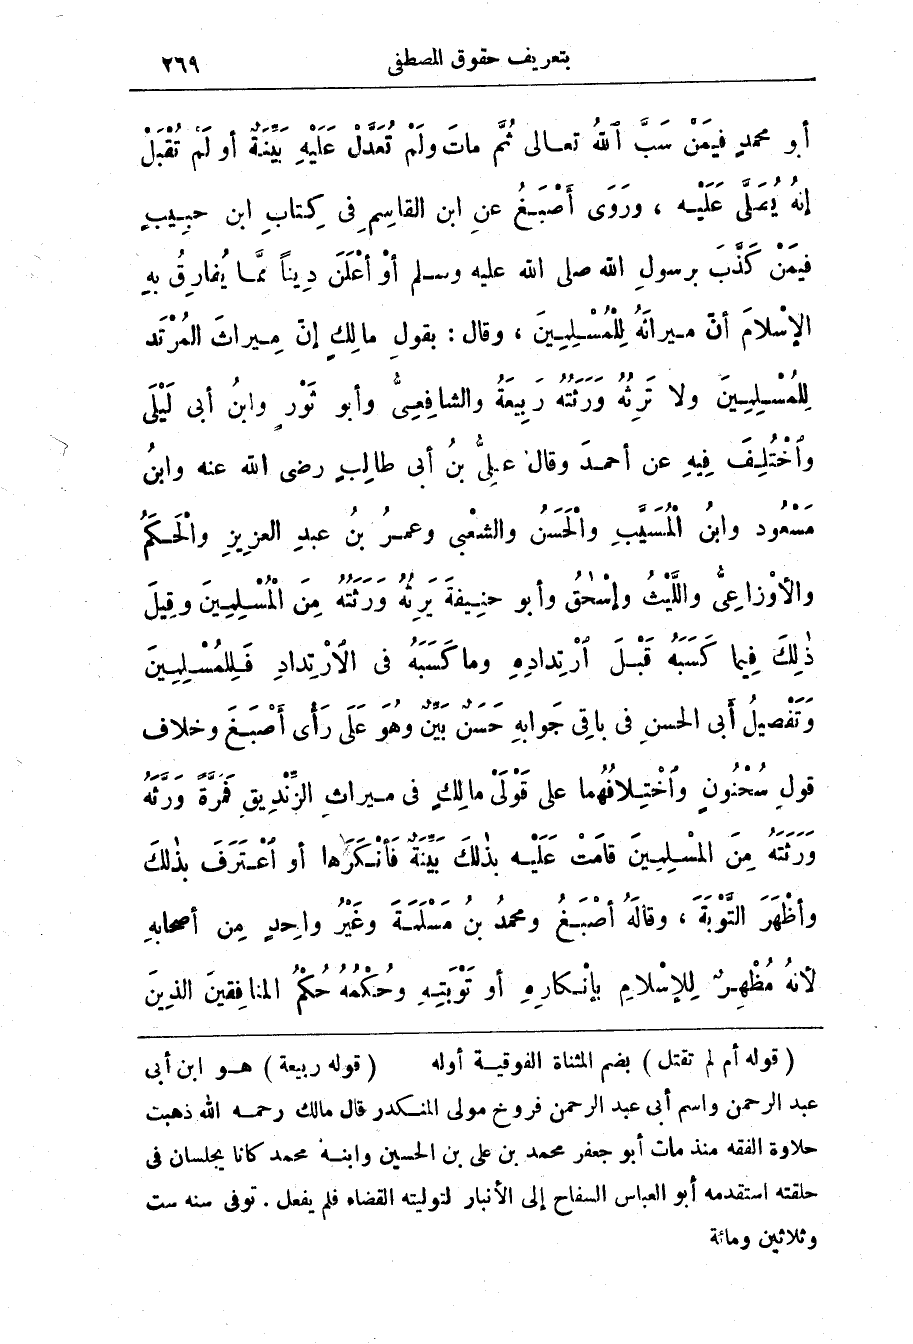 بتعريف حقوق المصطفى ٢٦٩
أبو محمدٍ فيمَنْ سَبَّ ٱللهُ تعـالى ثُمَّ ماتَ ولَمْ تُعَدَّلْ عَلَيْهِ بَيِّنَةٌ أو لَمْ تُقْبَلْ
إنهُ يُصَلَّى عَلَيْـهِ ، ورَوَى أَصْبَـغُ عنِ ابن القاسِمِ فى كِتابِ ابن حبِـيبٍ
فيمَنْ كَذَّبَ برسولِ الله صلى الله عليه وسـلم أوْ أعْلَنَ دِيناً ممَّـا يُفارِقُ بهِ
الإسْلامَ أنّ مـيراثَهُ لِلْمُسْـلِمِـينَ ، وقال : بقولِ مالِكٍ إنّ مِـيراثَ المُرْتَد
لِلمُسْـلِمِـينَ ولا تَرِثُهُ وَرَثَتُهُ رَبِيعَةُ والشافِعِىُّ وأبو ثَوْرٍ وابنُ أبى لَيْلَى
وٱخْتُلِـفَ فِيهِ عن أحمـدَ وقال علِىُّ بنُ أبى طالِبٍ رضى الله عنه وابنُ
مَسْعُود وابنُ الْمُسَيَّبِ والْحَسَنُ والشعْبى وعمـرُ بنُ عبدِ العزيزِ والْحَـكَمُ
والأوْزاعِىُّ واللَّيْثُ وإسْحٰقُ وأبو حنِـيفةَ يَرِثُهُ وَرَثَتُهُ مِنَ الْمُسْـلِمِـينَ وقِيلَ
ذٰلِكَ فِيما كَسَبَهُ قَبْـلَ ٱرْتِدادِهِ وما كَسَبَهُ فى الارْتِدادِ فَـلِلمُسْـلِمِـينَ
وَتَفْصِيلُ أبى الحسنِ فى باقِى جَوابهِ حَسَنٌ بَيِّنٌ وهُوَ عَلَى رَأْى أَصْبَـغَ وخلاف
قولِ سُحْنُونٍ وٱخْتِـلافُهُما على قَوْلَىْ مالِكٍ فى مـيراثِ الزِّنْدِيقِ فَمَرَّةً وَرَّثَهُ
وَرَثَتَهُ مِنَ المُسْـلِمِـينَ قامَتْ عَلَيْـهِ بذٰلكَ بَيِّنَةٌ فَأنْـكَرَها أو ٱعْـتَرَفَ بذٰلكَ
وأظْهَرَ التَّوْبَةَ ، وقالَهُ أصْبَـغُ ومحمدُ بنُ مَسْلَمَـةَ وغَيْرُ واحِدٍ مِن أصحابهِ
لأنهُ مُظْهِـرٌ لِلإسْلامِ بإنْـكارِهِ أو تَوْبَتِـهِ وحُكْمُهُ حُكْمُ المنافِقينَ الذِينَ
( قوله أم لم تقتل ) بضم المثناة الفوقيـة أوله ( قوله ربيعة ) هـو ابن أبى
عبد الرحمن واسم أبى عبد الرحمن فروخ مولى المنـكدر قال مالك رحمـه الله ذهبت
حلاوة الفقه منذ مات أبو جعفر محمد بن على بن الحسين وابنـه محمد كانا يجلسان فى
حلقته استقدمه أبو العباس السفاح إلى الأنبار لتوليته القضاء فلم يفعل . توفى سنه ست
وثلاثين ومائة